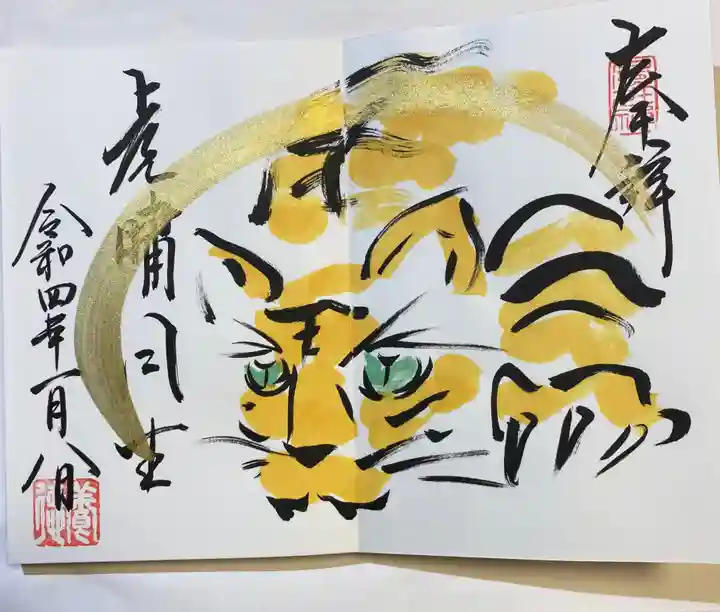 奉拝
虎嘯風生
令和四年一月八日